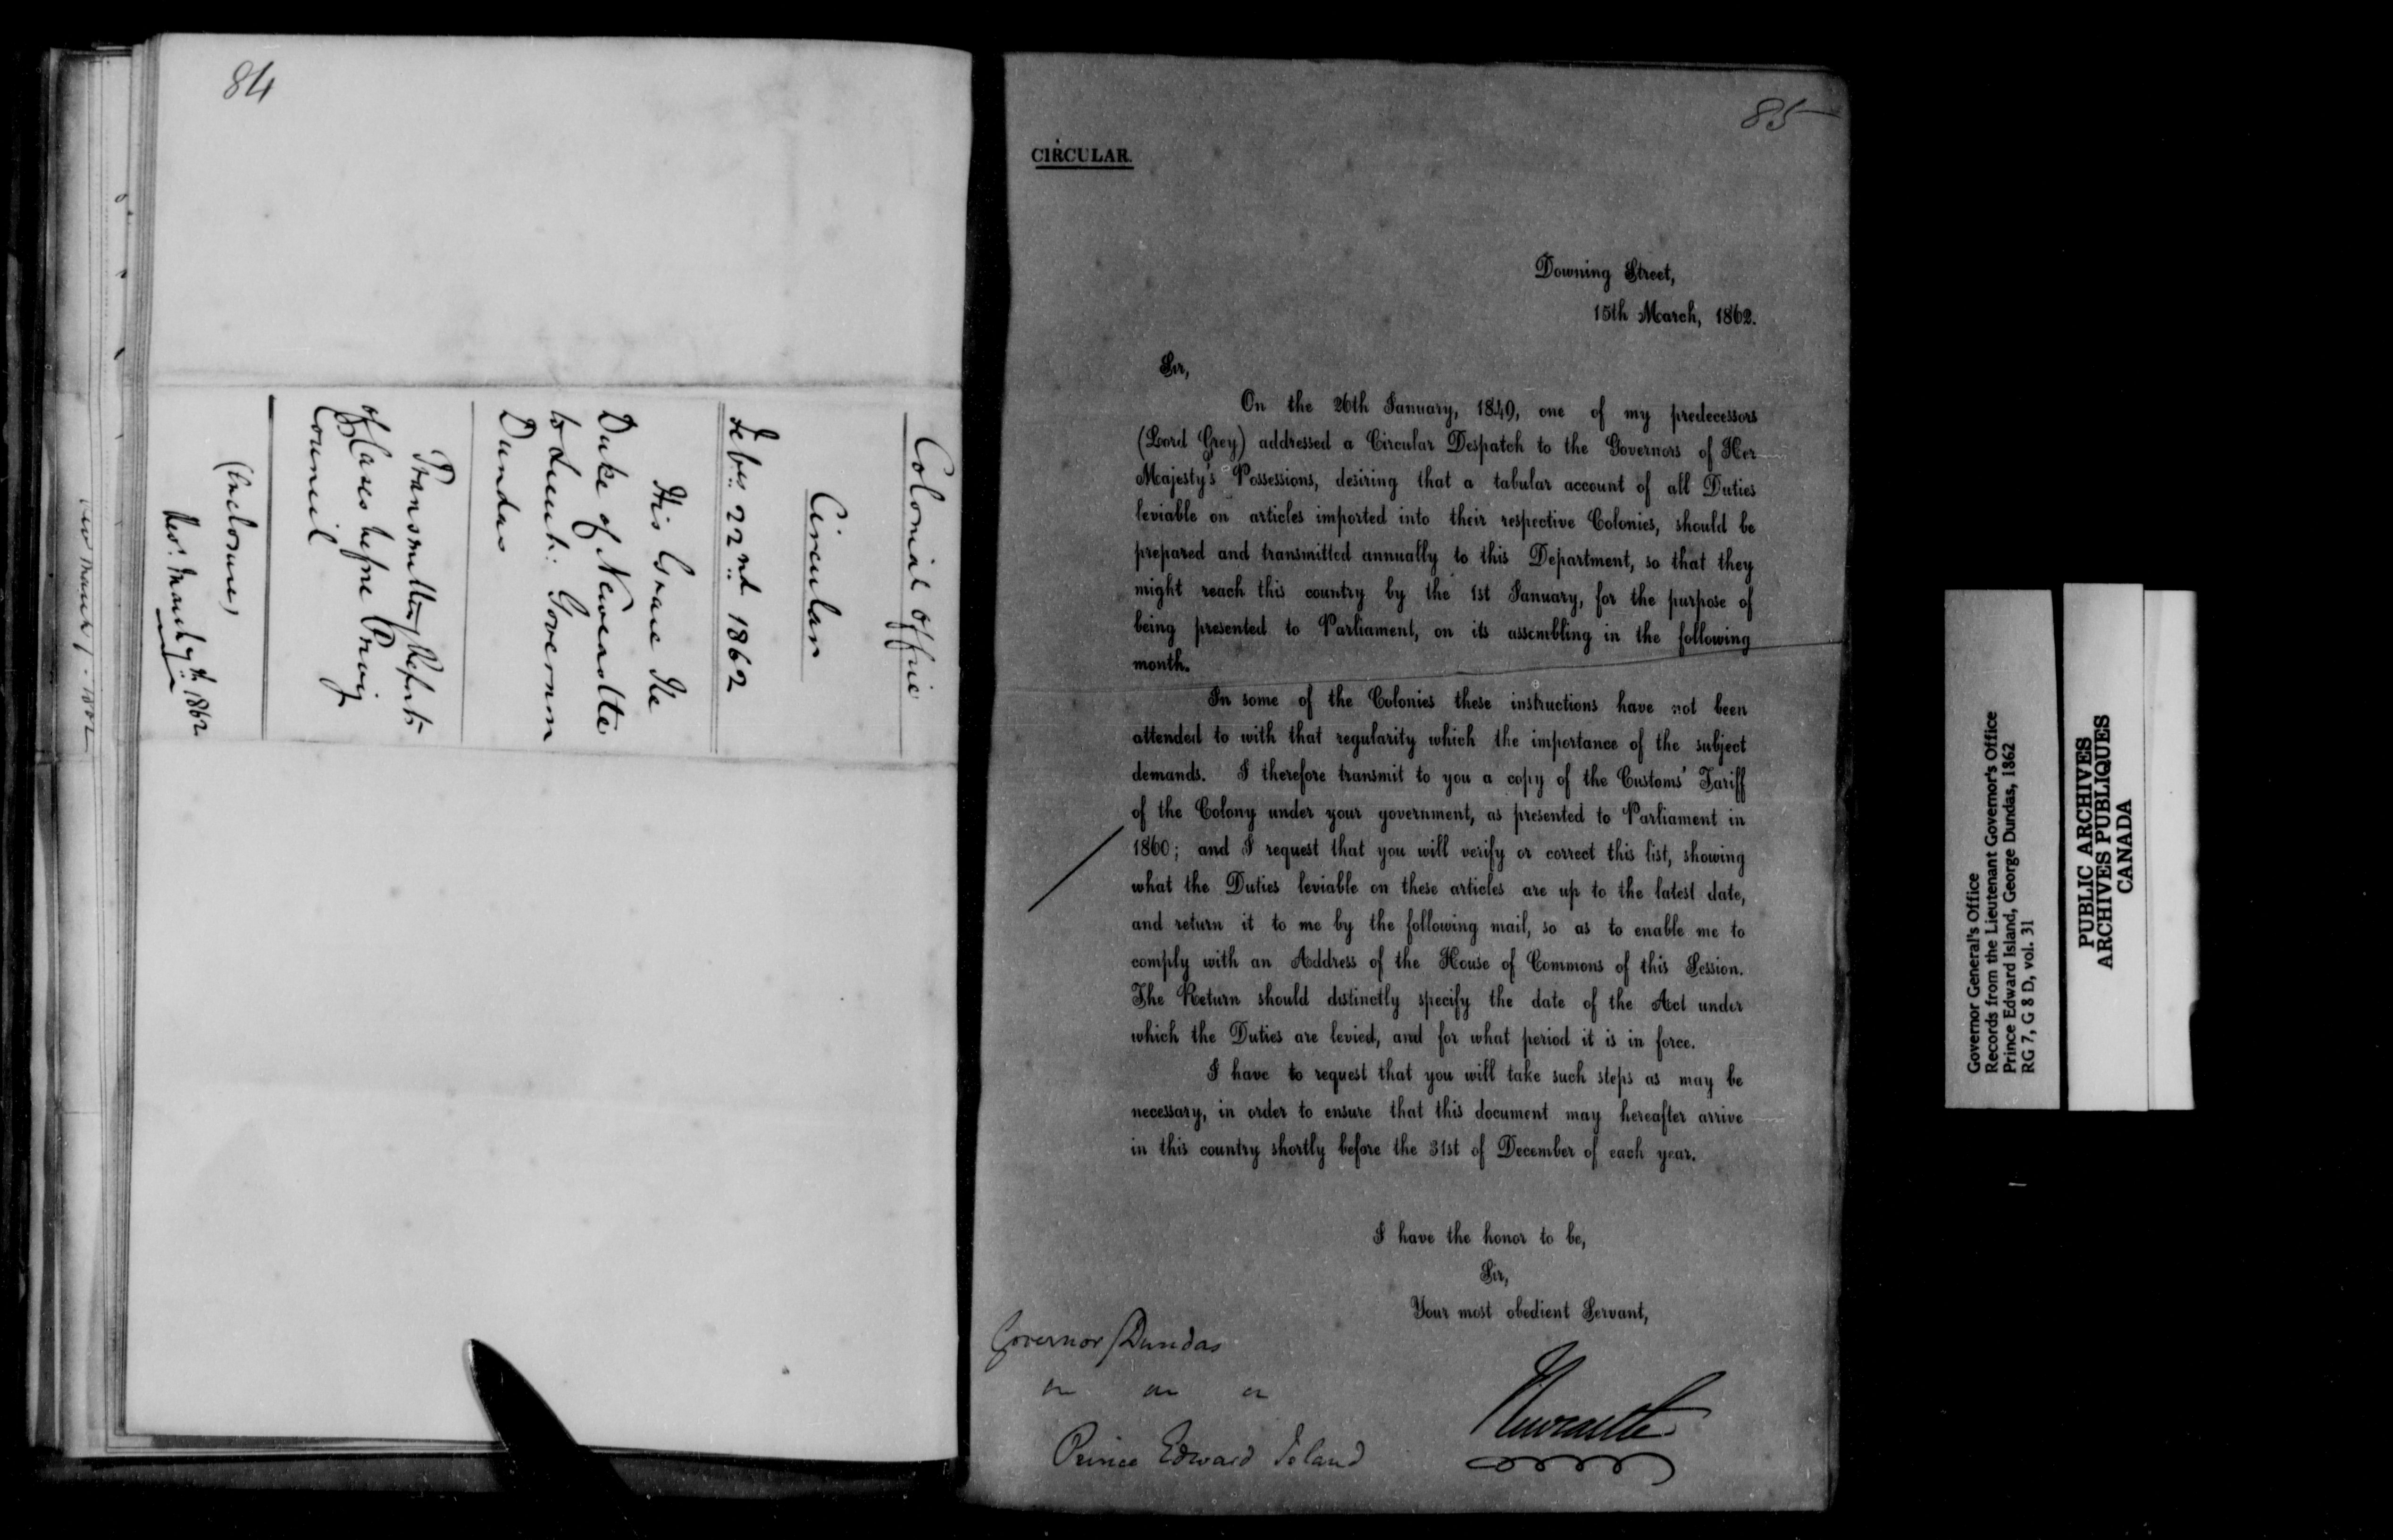 84
Colonial Office
Circular
Feby. 22nd 1862
His Grace the
Duke of Newcastle
to Lieut. Governor
Dundas
Transmitting Reports
of Cases before Privy
Council
(Enclosures)
Rec. March 7th 1862
85
CIRCULAR.
Downing Street,
15th March, 1862.
Sir,
On the 26th January, 1849, one of my predecessors
(Lord Grey) addressed a Circular Despatch to the Governors of Her
Majesty's Possessions, desiring that a tabular account of all Duties
leviable on articles imported into their respective Colonies, should be
prepared and transmitted annually to this Department, so that they
might reach this country by the 1st January, for the purpose of
being presented to Parliament, on its assembling in the following
month.
In some of the Colonies these instructions have not been
attended to with that regularity which the importance of the subject
demands. I therefore transmit to you a copy of the Customs' Tariff
of the Colony under your government, as presented to Parliament in
1860; and I request that you will verify or correct this list, showing
what the Duties leviable on these articles are up to the latest date,
and return it to me by the following mail, so as to enable me to
comply with an Address of the House of Commons of this Session.
The Return should distinctly specify the date of the Act under
which the Duties are levied, and for what period it is in force.
I have to request that you will take such steps as may be
necessary, in order to ensure that this document may hereafter arrive
in this country shortly before the 31st of December of each year.
I have the honor to be,
Sir,
Your most obedient Servant,
Newcastle
Governor Dundas
Prince Edward Island
Governor General's Office
Records from the Lieutenant Governor's Office
Prince Edward Island, George Dundas, 1862
RG 7, G 8 D, vol. 31
PUBLIC ARCHIVES
ARCHIVES PUBLIQUES
CANADA